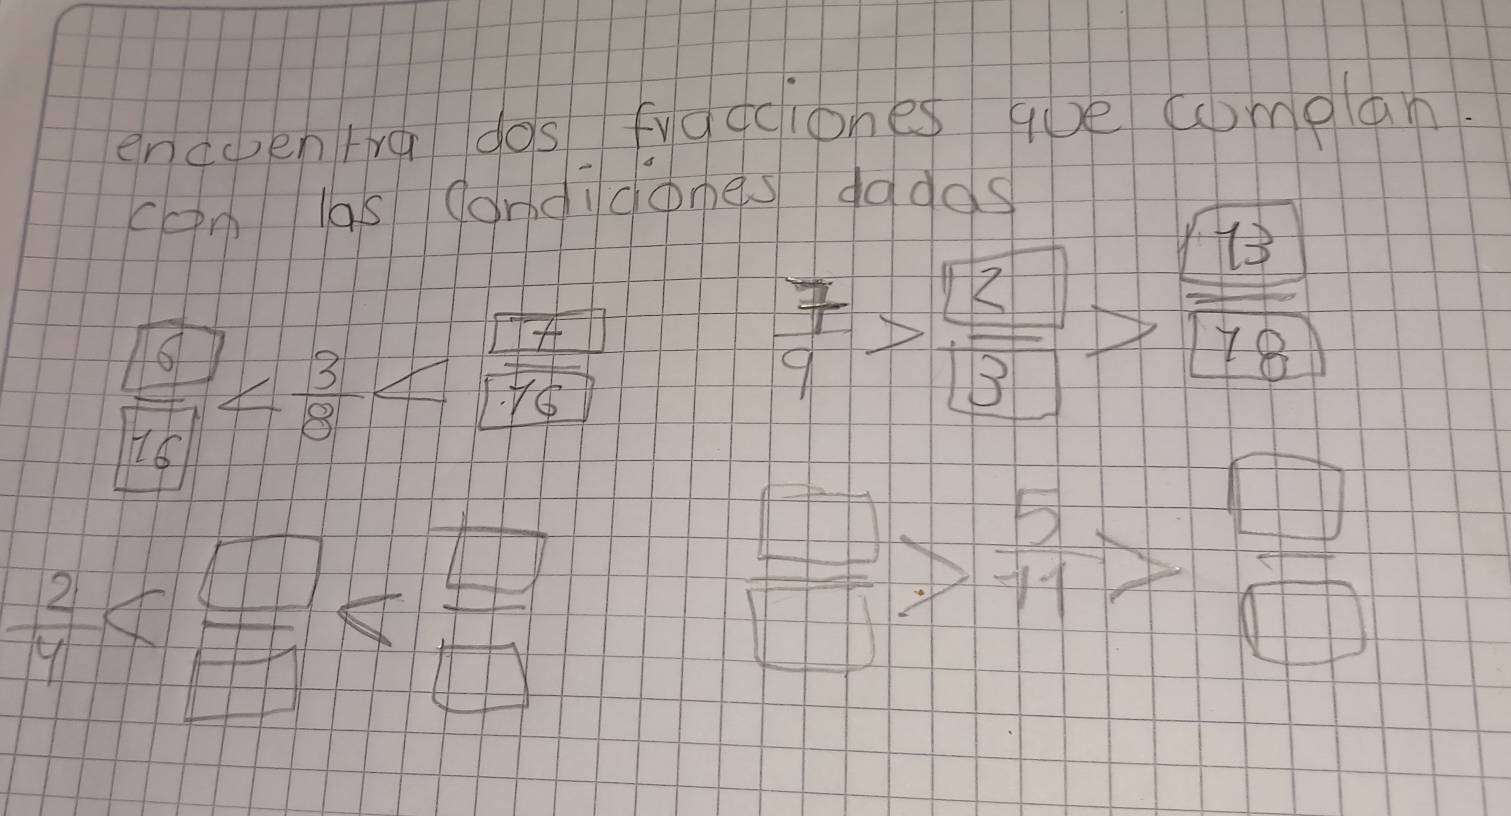 encuentra dos fracciones que cumplan.
con las condiciones dadas
6/16 < 3/8 < 7/16
7/9 > 2/3 > 13/18
2/4 < <
> 5/11 >